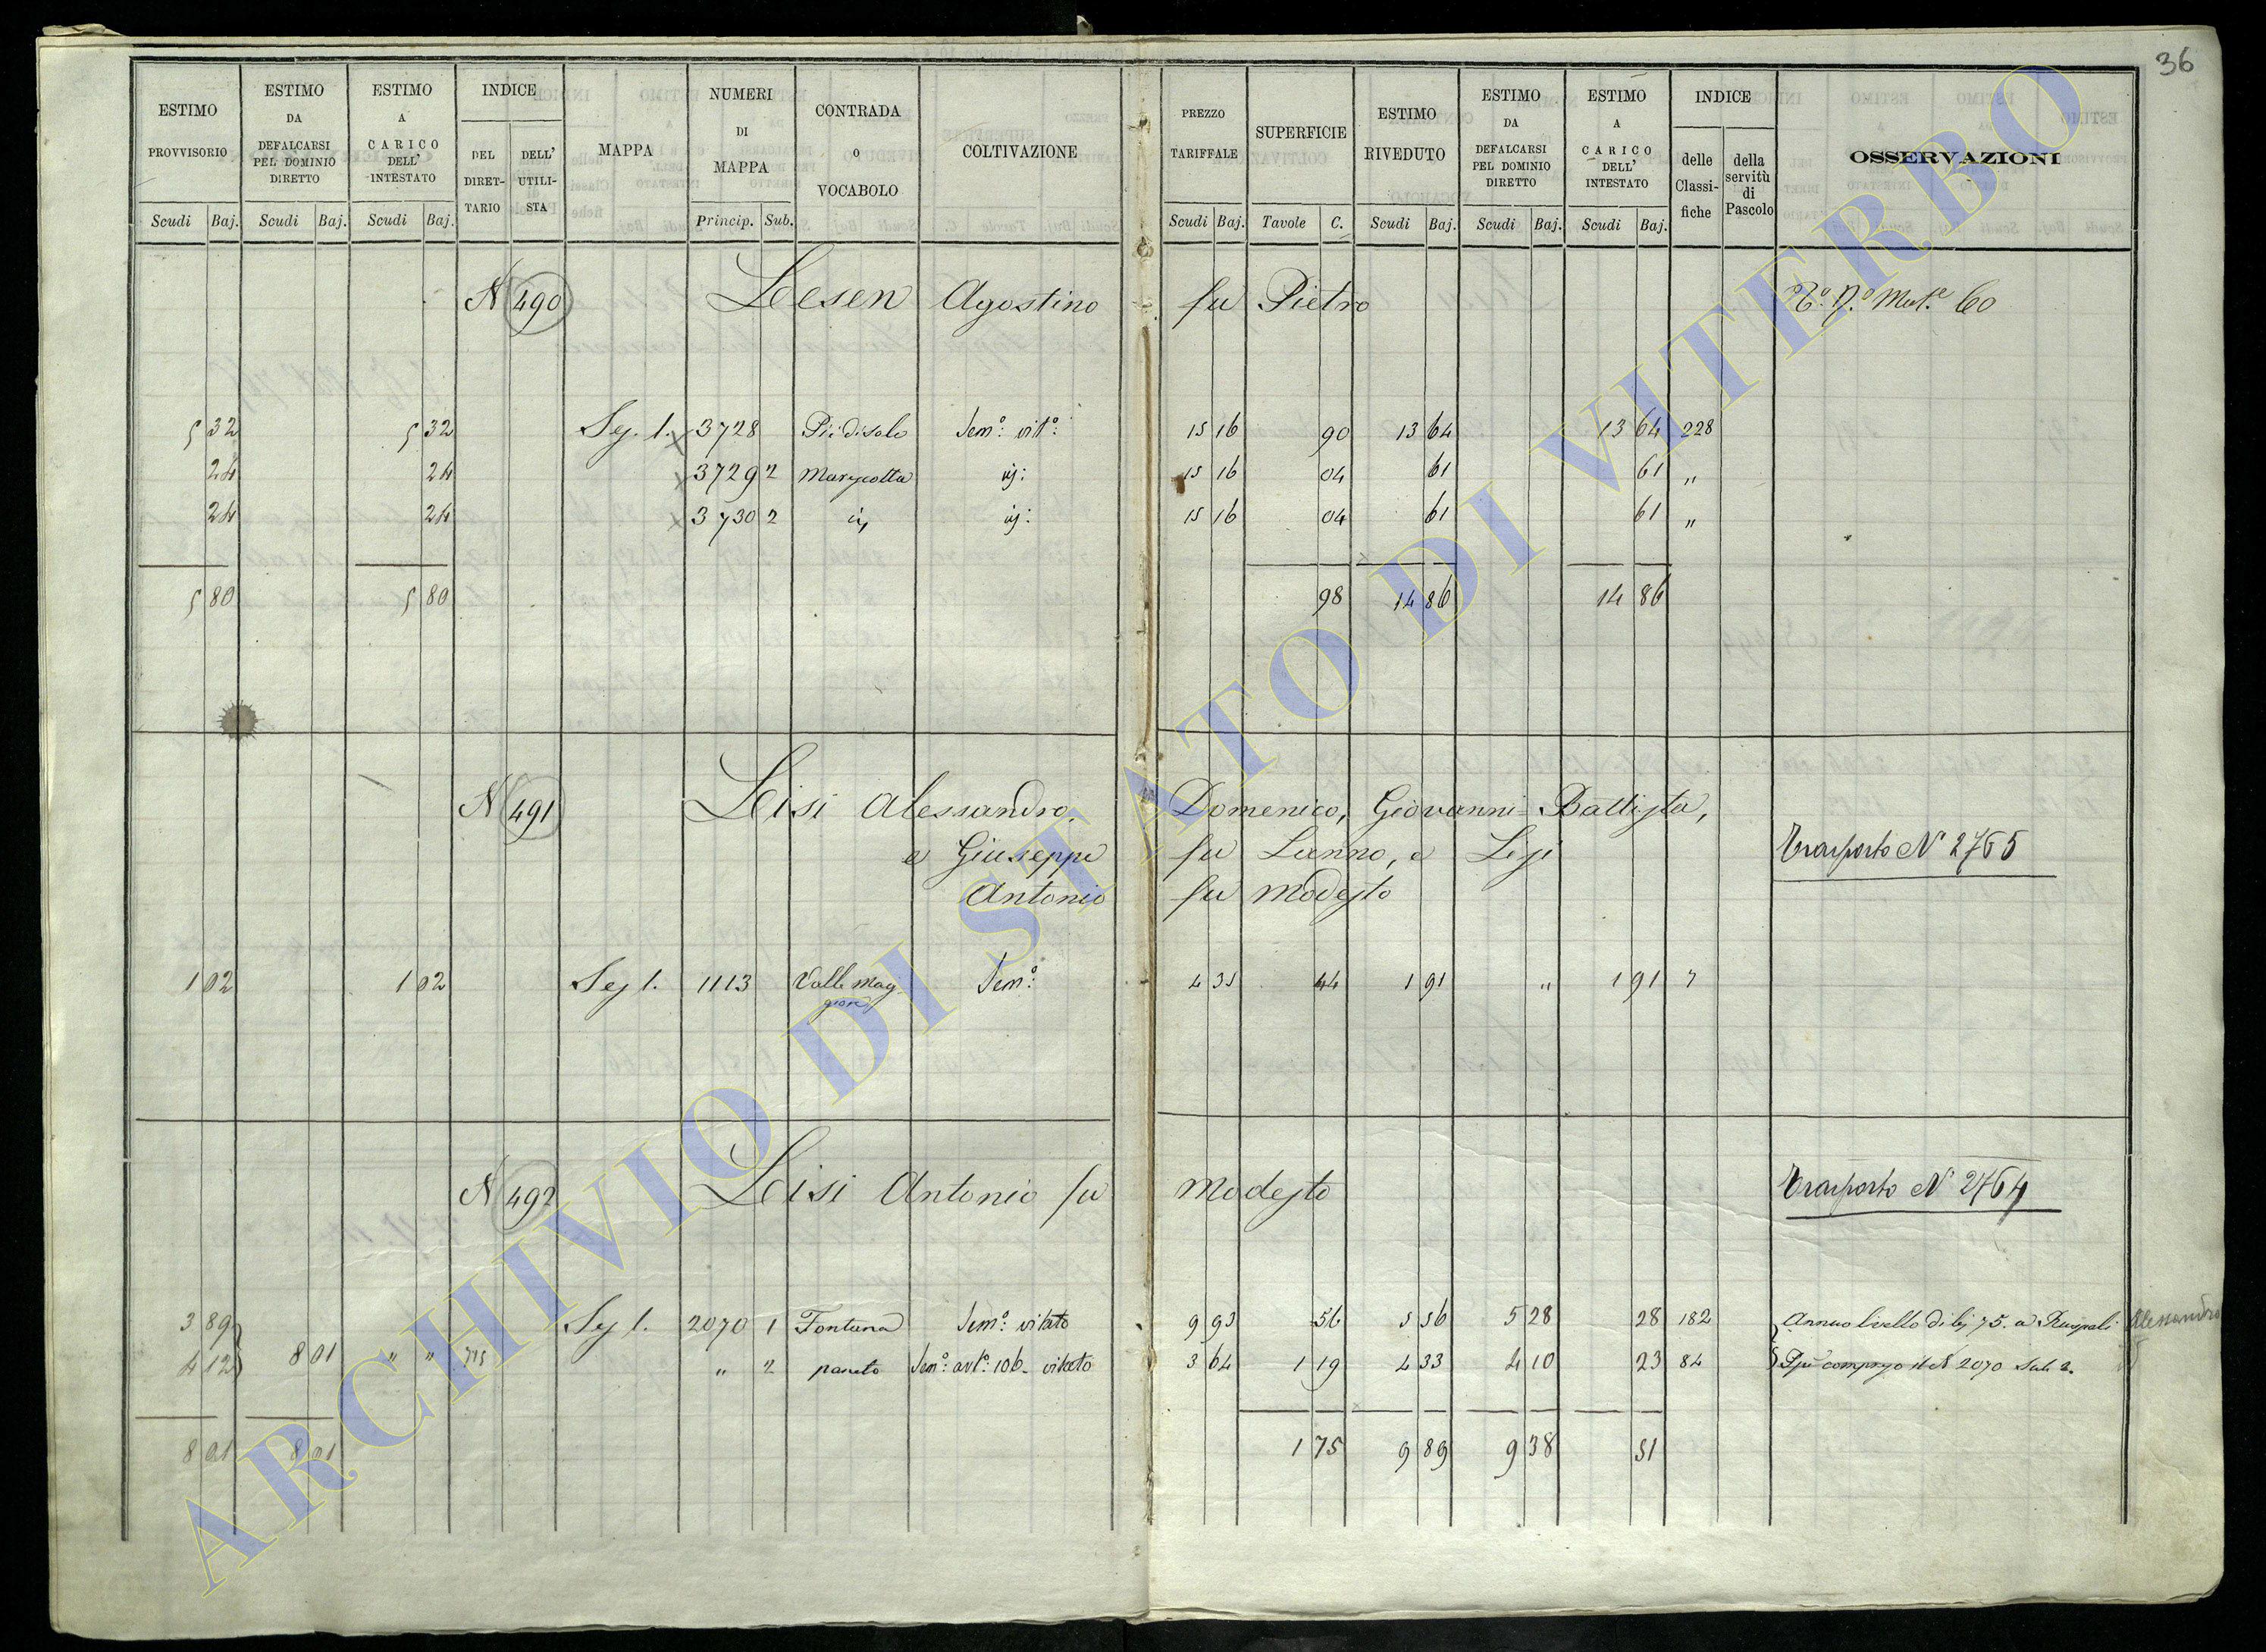 36
ESTIMO PROVVISORIO Scudi Baj.
ESTIMO DA DEFALCARSI PEL DOMINIO DIRETTO Scudi Baj.
ESTIMO A CARICO DELL' INTESTATO Scudi Baj.
INDICE DEL DIRETTARIO DELL' UTILISTA
MAPPA
NUMERI DI MAPPA Princip. Sub.
CONTRADA O VOCABOLO
COLTIVAZIONE
PREZZO TARIFFALE Scudi Baj.
SUPERFICIE Tavole C.
ESTIMO RIVEDUTO Scudi Baj.
ESTIMO DA DEFALCARSI PEL DOMINIO DIRETTO Scudi Baj.
ESTIMO A CARICO DELL' INTESTATO Scudi Baj.
INDICE delle Classifiche della servitù di Pascolo
OSSERVAZIONI
N 490 Lesen Agostino fu Pietro 60
5 32 5 32 Sez. 1. x 3728 Piedisolo Sem.º vit.º 15 16 90 13 64 13 64 228
24 24 x 3729 2 15 16 04 61 61 "
24 24 x 3730 2 15 16 04 61 61 "
5 80 5 80 98 14 86 14 86
N 491 Lisi Alessandro, Domenico, Giovanni Battista,
e Giuseppe fu Lanno, e Lisi Trasporto N 2765
Antonio fu Modesto
1 02 1 02 Sez 1. 1113 Valle Mag-
giore Sem.º 4 35 44 1 91 " 1 91 7
N 492 Lisi Antonio fu Modesto Trasporto N 2764
3 89 Sez 1. 2070 1 Fontana Sem.º vitato 9 93 56 5 56 5 28 28 182 Annuo livello di bj 75. a Ruspoli Alessandro
4 12 8 01 " " 715 " 2 paneto Sem.º art.º 106. vitato 3 64 1 19 4 33 4 10 23 84 2070 Sub 2.
8 01 8 01 1 75 9 89 9 38 51
ARCHIVIO DI STATO DI VITERBO